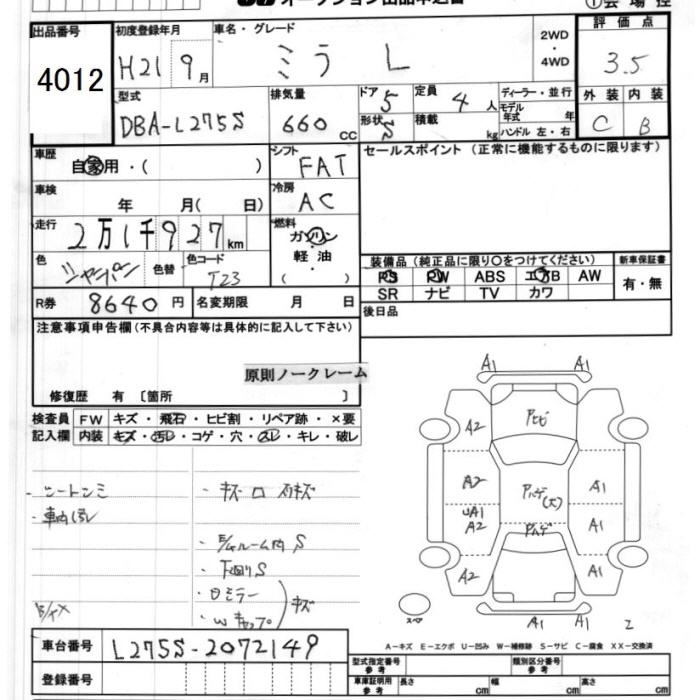 オークション出品申込書
①会場控
出品番号 初度登録年月 車名・グレード 2WD ・ 4WD 評価点
4012 H21 9月 ミラ L 3.5
型式 排気量 ドア 5 定員 4人 ディーラー・並行 外装 内装
DBA-L275S 660cc 形状 S 積載 kg モデル年式 年 C B
ハンドル 左・右
車歴 シフト セールスポイント (正常に機能するものに限ります)
自家用・( ) FAT
車検 冷房
年 月( 日) AC
走行 燃料
2万1千927km ガソリン
軽・油
( )
色 シャンパン 色替 色コード T23
装備品 (純正品に限り○をつけてください) 新車保証書
PS PW ABS エアB AW 有・無
SR ナビ TV カワ
R券 8640円 名変期限 月 日
後日品
注意事項申告欄 (不具合内容等は具体的に記入して下さい)
原則ノークレーム
修復歴 有 〔箇所 〕
検査員 FW キズ・飛石・ヒビ割・リペア跡・×要
記入欄 内装 キズ・汚レ・コゲ・穴・スレ・キレ・破レ
・シートシミ
・車内汚レ
・下廻りS
キズ
L275S-2072149
車台番号
登録番号
A1 A1
A2 Pトビ
A2 Pハゲ(大) A1
UA1
A2 Pハゲ A1
A2 A1
スペア A1 A1 2
A-キズ E-エクボ U-凹み W-補修跡 S-サビ C-腐食 XX-交換済
型式指定番号 参考 類別区分番号 参考
車庫証明用 参考 長さ cm 幅 cm 高さ cm